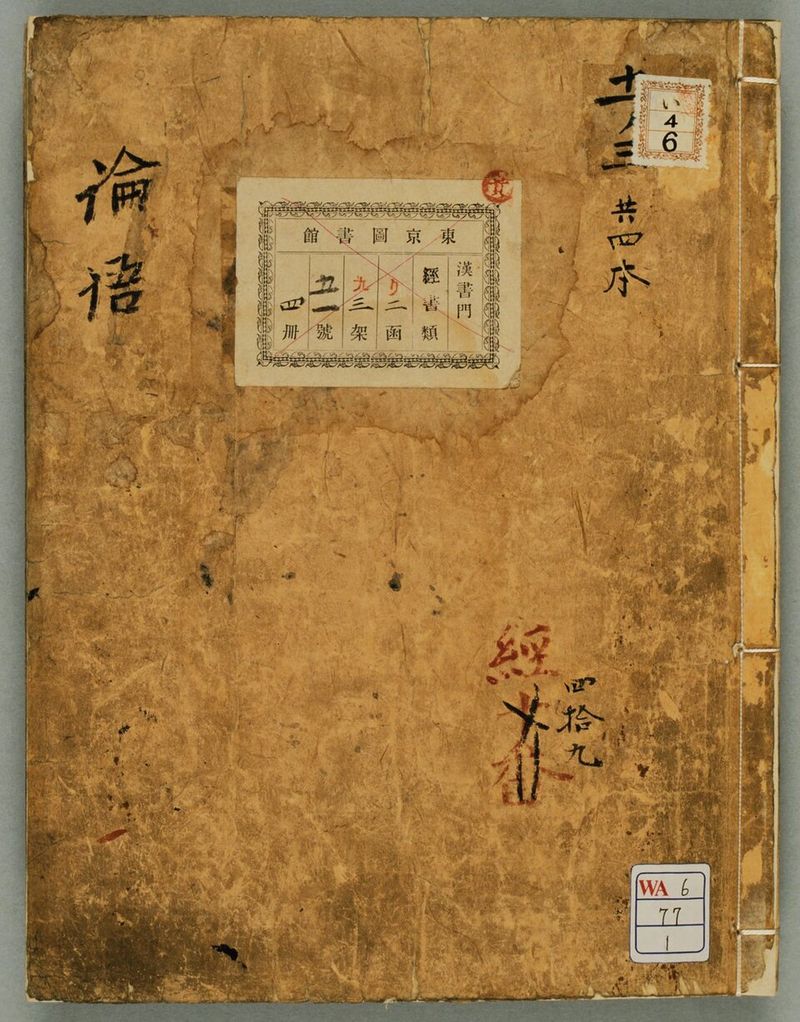 論語
東京圖書館
漢書門
經書類
二函
九三架
五一號
四冊
い
4
6
共四本
經
四拾九
WA 6
77
1